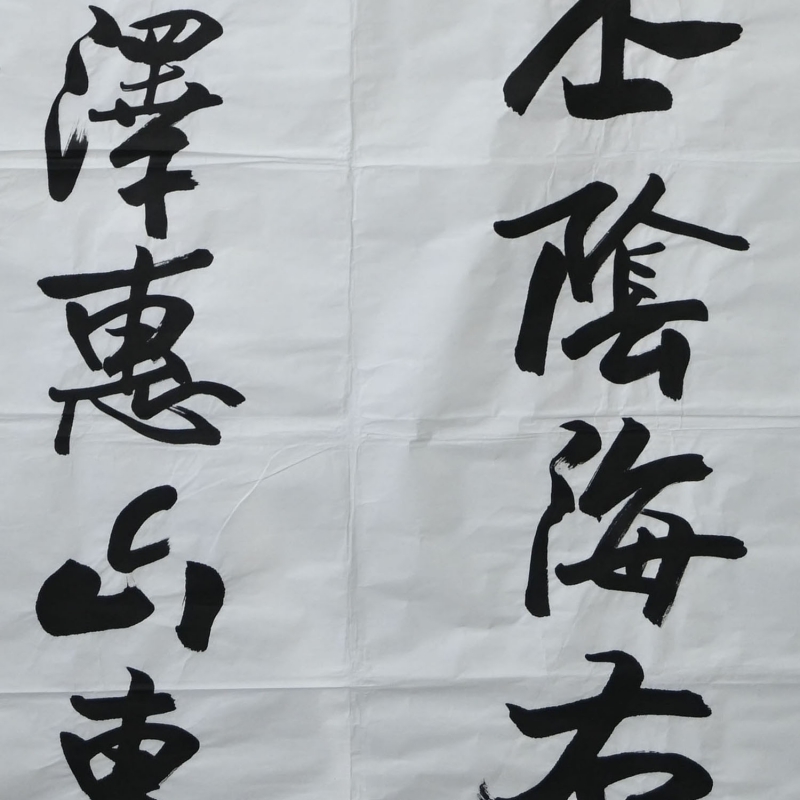 陰海右
澤惠山東